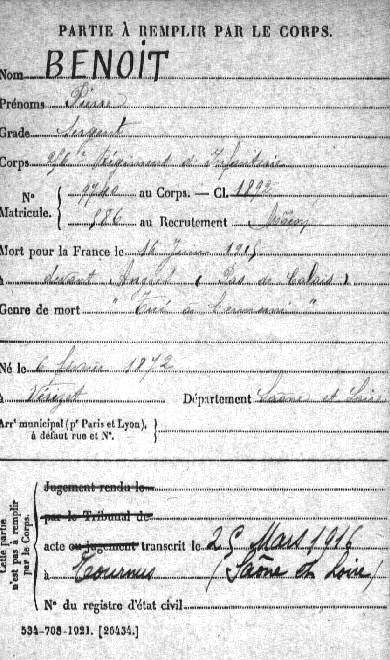 PARTIE À REMPLIR PAR LE CORPS.
Nom BENOIT
Prénoms Pierre
Grade Sergent
Corps 256e Régiment d'Infanterie
N° Matricule. au Corps. — Cl. 1892
986 au Recrutement Mâcon
Mort pour la France le 16 Juin 1915
à devant Angres (Pas de Calais)
Genre de mort "Tué à l'ennemi"
Né le 6 février 1872
à Vérizet Département Saône et Loire
Arrt municipal (pr Paris et Lyon), à défaut rue et N°.
Cette partie n'est pas à remplir par le Corps.
Jugement rendu le
par le Tribunal de
acte ou jugement transcrit le 25 Mars 1916
à Tournus (Saône et Loire)
N° du registre d'état civil
534-708-1921. [26434.]